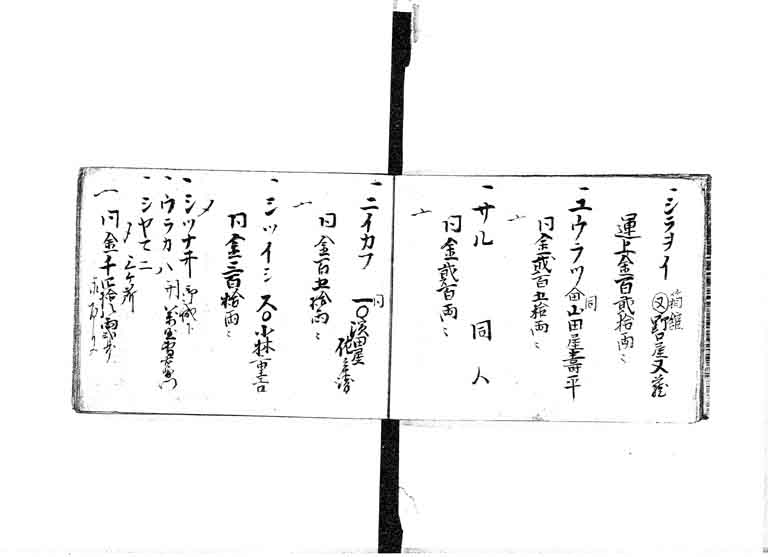 一シラヲイ 箱館 野口屋又蔵
運上金百弐拾両
一ユウラツ 同 山田屋壽平
同金弐百五拾両
一サル 同人
同金弐百両
一ニイカフ 同 濱田屋
同金百五拾両
一シツイシ 小林重吉
同金三百拾両
一シツナ井 御城下
一ウラカハ
一シヤマニ
〆三ケ所
一同金千